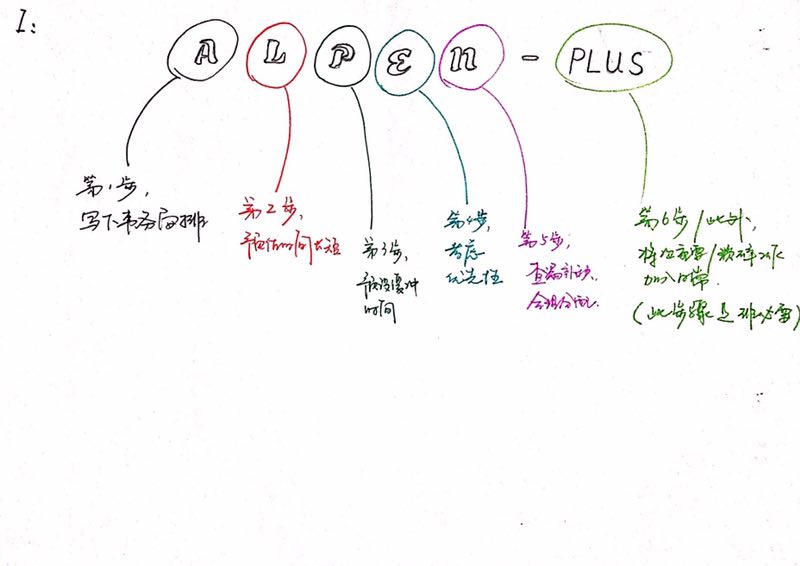 I:
A L P E N - PLUS
第1步,
写下事务安排
第2步,
预估时间长短
第3步,
预留缓冲
时间
第4步,
考虑
优先性
第5步,
查漏补缺,
合理分配.
第6步/此外,
将次重要/琐碎
加入日常.
(此步骤是非必需)